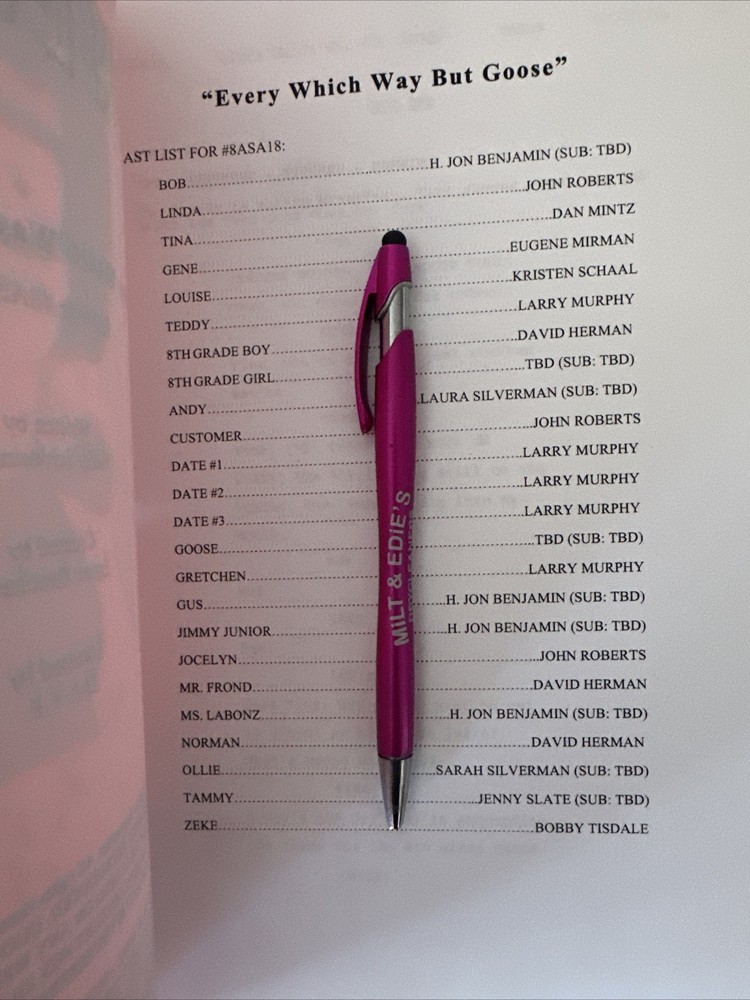 “Every Which Way But Goose”
AST LIST FOR #8ASA18:
BOB..........H. JON BENJAMIN (SUB: TBD)
LINDA..........JOHN ROBERTS
TINA..........DAN MINTZ
GENE..........EUGENE MIRMAN
LOUISE..........KRISTEN SCHAAL
TEDDY..........LARRY MURPHY
8TH GRADE BOY..........DAVID HERMAN
8TH GRADE GIRL..........TBD (SUB: TBD)
ANDY..........LAURA SILVERMAN (SUB: TBD)
CUSTOMER..........JOHN ROBERTS
DATE #1..........LARRY MURPHY
DATE #2..........LARRY MURPHY
DATE #3..........LARRY MURPHY
GOOSE..........TBD (SUB: TBD)
GRETCHEN..........LARRY MURPHY
GUS..........H. JON BENJAMIN (SUB: TBD)
JIMMY JUNIOR..........H. JON BENJAMIN (SUB: TBD)
JOCELYN..........JOHN ROBERTS
MR. FROND..........DAVID HERMAN
MS. LABONZ..........H. JON BENJAMIN (SUB: TBD)
NORMAN..........DAVID HERMAN
OLLIE..........SARAH SILVERMAN (SUB: TBD)
TAMMY..........JENNY SLATE (SUB: TBD)
ZEKE..........BOBBY TISDALE
MiLT & EDiE'S